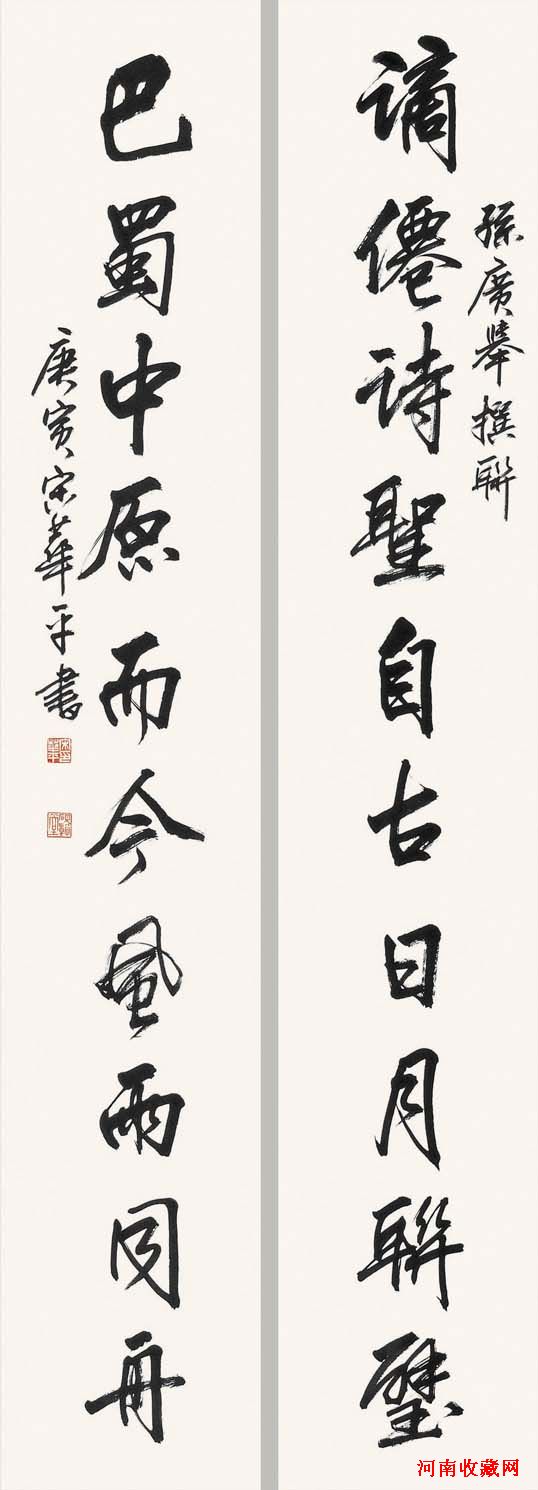 孫廣舉撰聯
謫僊詩聖自古日月聯璧
巴蜀中原而今風雨同舟
庚寅宋華平書
河南收藏网